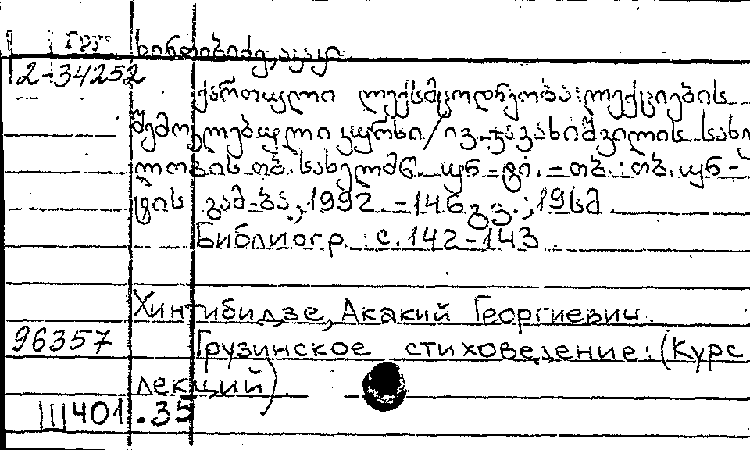 Груз. ხინთიბიძე, აკაკი
2-34252
ქართული ლექსმცოდნეობა: ლექციების
შემოკლებული კურსი/ივ. ჯავახიშვილის სახე
ლობის თბ. სახელმწ. უნ-ტი. - თბ.: თბ. უნ-
ტის გამ-ბა, 1992. - 146 გვ.; 19 სმ
Библиогр. с. 142-143
Хинтибидзе, Акакий Георгиевич.
96357 Грузинское стиховедение: (Курс
лекций)
Ш401.35